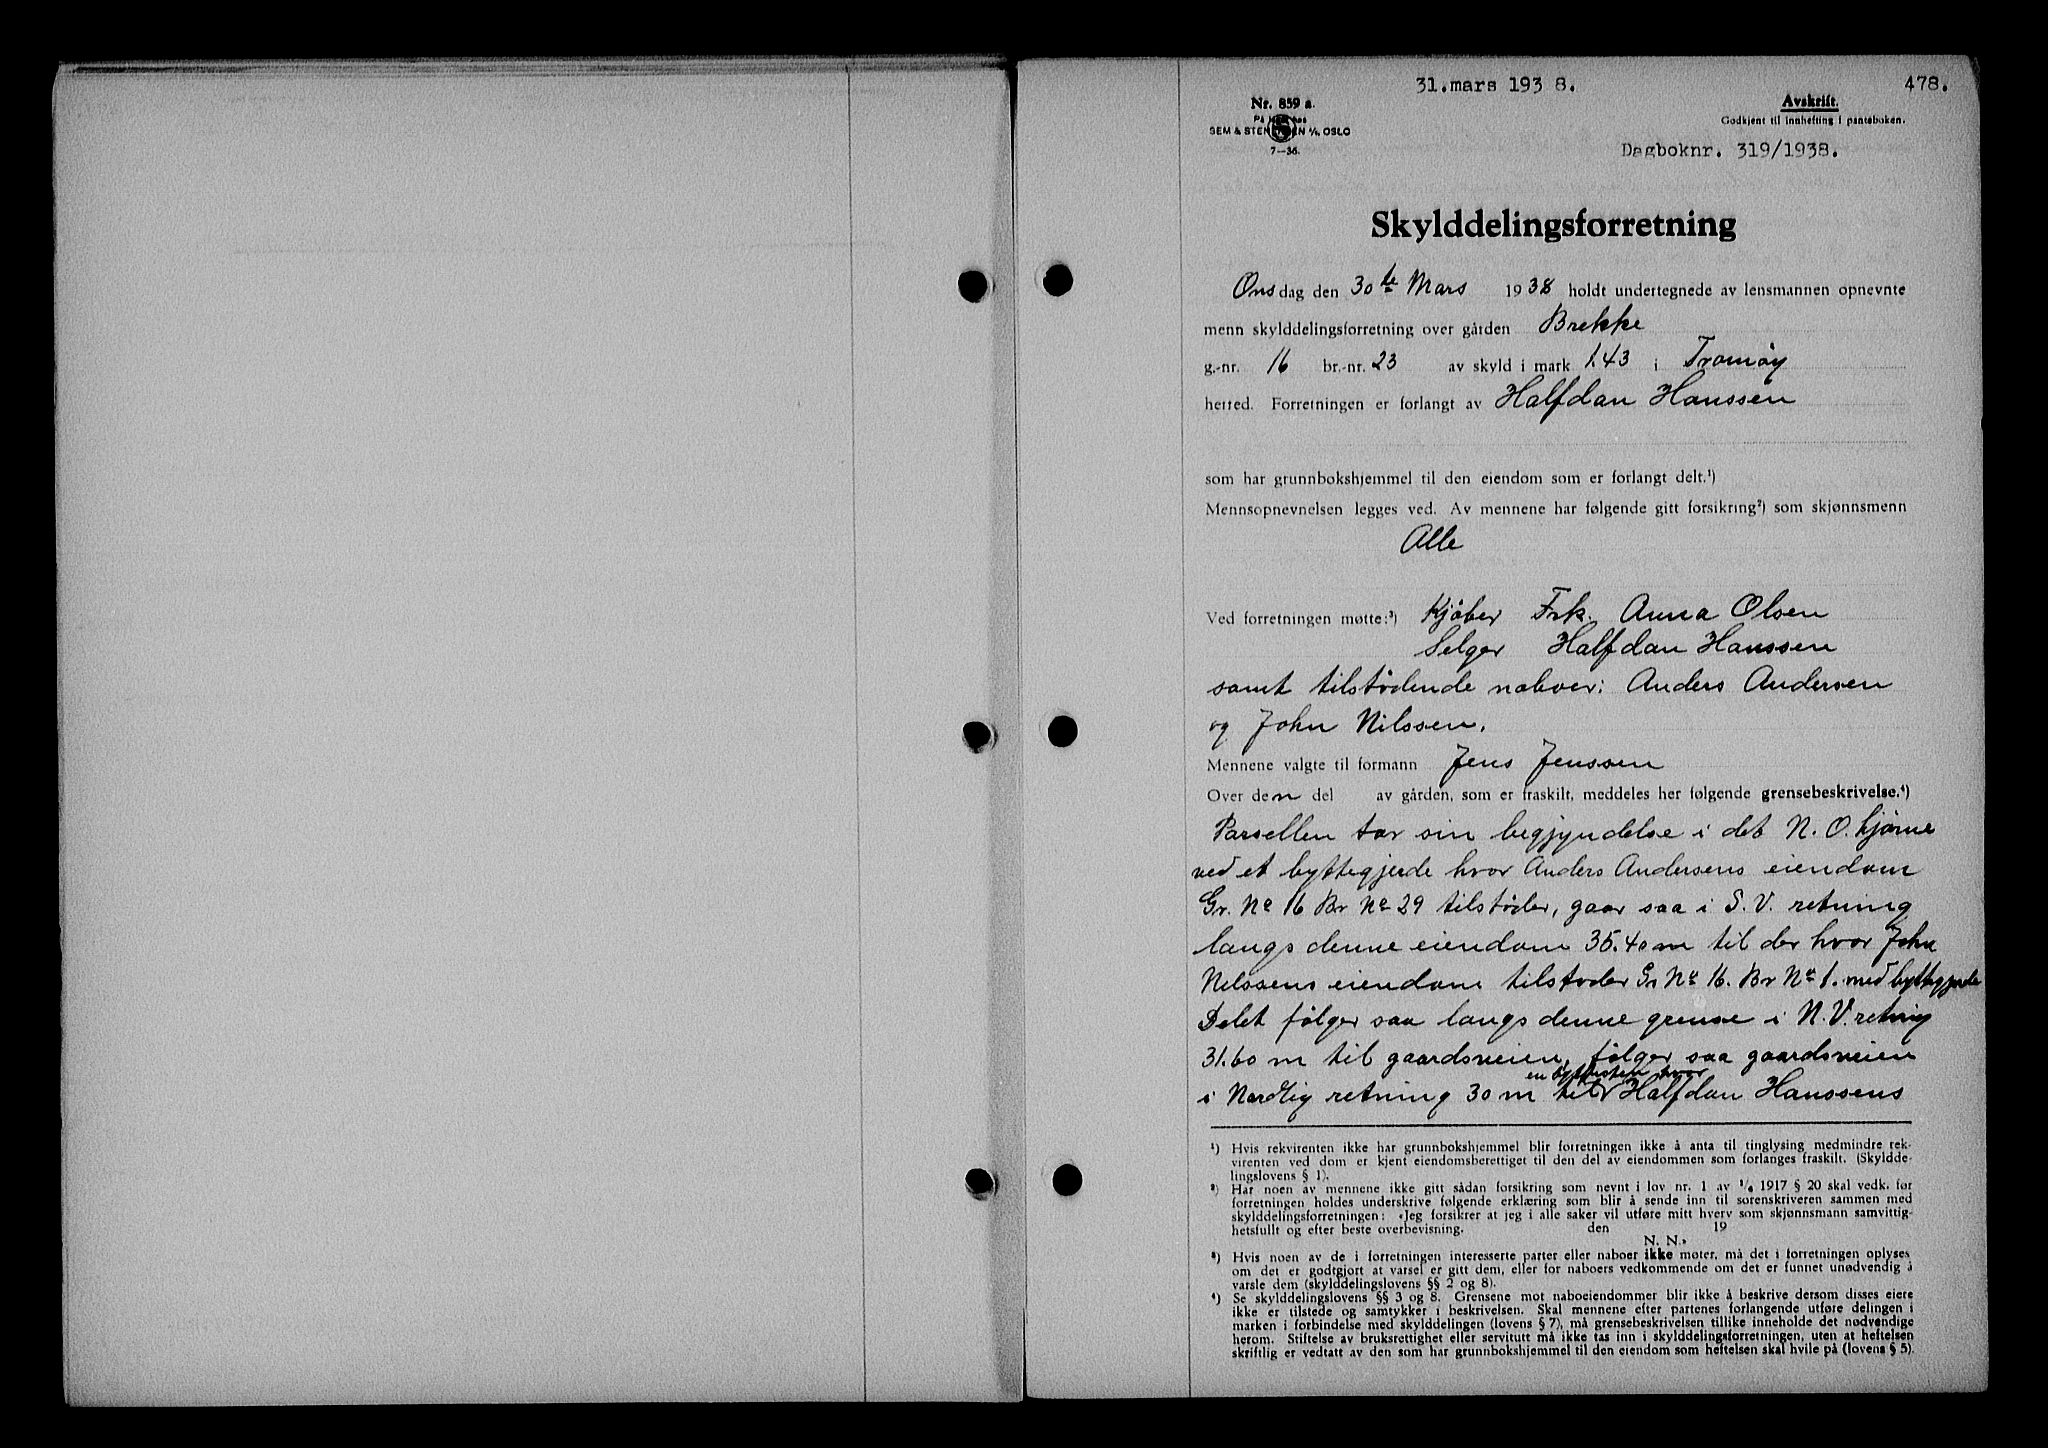 31.mars 193 8.
478.
Nr. 859 a.
På lager hos
SEM & STENERSEN A/S, OSLO
7—36.
Avskrift.
Godkjent til innhefting i panteboken.
Dagboknr. 319/1938.
Skylddelingsforretning
Onsdag den 30te Mars 1938 holdt undertegnede av lensmannen opnevnte
menn skylddelingsforretning over gården Brekke
g.-nr. 16 br.-nr. 23 av skyld i mark 1.43 i Tromöy
herred. Forretningen er forlangt av Halfdan Hanssen
som har grunnbokshjemmel til den eiendom som er forlangt delt.¹)
Mennsopnevnelsen legges ved. Av mennene har følgende gitt forsikring²) som skjønnsmenn
Alle
Ved forretningen møtte:³) Kjöber Frk. Anna Olsen
Selger Halfdan Hanssen
samt tilstödende naboer: Anders Andersen
og John Nilssen.
Mennene valgte til formann Jens Jenssen
Over den del av gården, som er fraskilt, meddeles her følgende grensebeskrivelse.⁴)
Parsellen tar sin begjyndelse i det N. O. hjörne
ved et byttegjerde hvor Anders Andersens eiendom
Gr. No 16 Br No 29 tilstöder, gaar saa i S. V. retning
langs denne eiendom 35.40 m til der hvor John
Nilssens eiendom tilstoder Gr No 16. Br No 1. med byttegjerde
Delet fölger saa langs denne grense i N. V. retning
31.60 m til gaardsveien, fölger saa gaardsveien
en byttesten hvor
i Nordlig retning 30 m til Halfdan Hanssens
¹) Hvis rekvirenten ikke har grunnbokshjemmel blir forretningen ikke å anta til tinglysing medmindre rek-
virenten ved dom er kjent eiendomsberettiget til den del av eiendommen som forlanges fraskilt. (Skyldde-
lingslovens § 1).
²) Har noen av mennene ikke gitt sådan forsikring som nevnt i lov nr. 1 av 1/6 1917 § 20 skal vedk. før
forretningen holdes underskrive følgende erklæring som blir å sende inn til sorenskriveren sammen med
skylddelingsforretningen: »Jeg forsikrer at jeg i alle saker vil utføre mitt hverv som skjønnsmann samvittig-
hetsfullt og efter beste overbevisning. den 19
N. N.»
³) Hvis noen av de i forretningen interesserte parter eller naboer ikke møter, må det i forretningen oplyses
om det er godtgjort at varsel er gitt dem, eller for naboers vedkommende om det er funnet unødvendig å
varsle dem (skylddelingslovens §§ 2 og 8).
⁴) Se skylddelingslovens §§ 3 og 8. Grensene mot naboeiendommer blir ikke å beskrive dersom disses eiere
ikke er tilstede og samtykker i beskrivelsen. Skal mennene efter partenes forlangende utføre delingen i
marken i forbindelse med skylddelingen (lovens § 7), må grensebeskrivelsen tillike inneholde det nødvendige
herom. Stiftelse av bruksrettighet eller servitutt må ikke tas inn i skylddelingsforretningen, uten at heftelsen
skriftlig er vedtatt av den som har grunnbokshjemmel til den eiendom som heftelsen skal hvile på (lovens § 5).